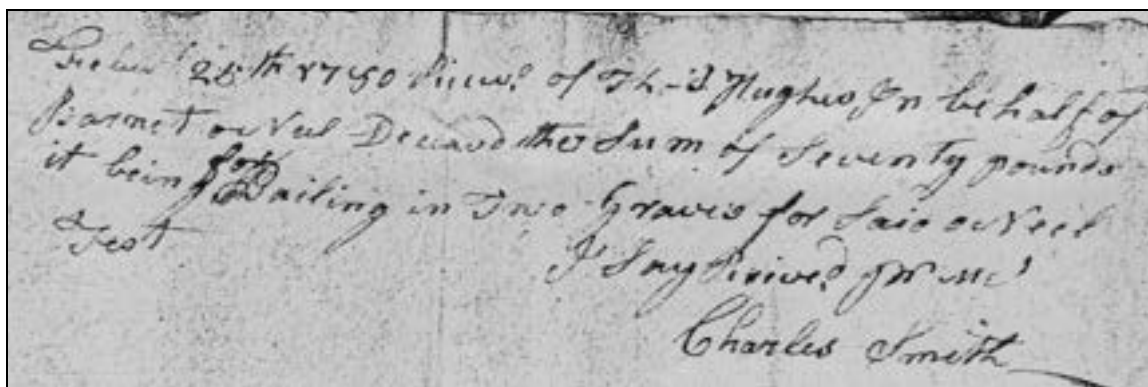 Febur 28th 1750 Reciev.d of Tho.s Hughes In behalf of
Barnet oNeel Deceasd the Sum of Seventy pounds
it being for Pailing in Two Graves for Said oNeel
Test
I Say Reciev.d pr me
Charles Smith